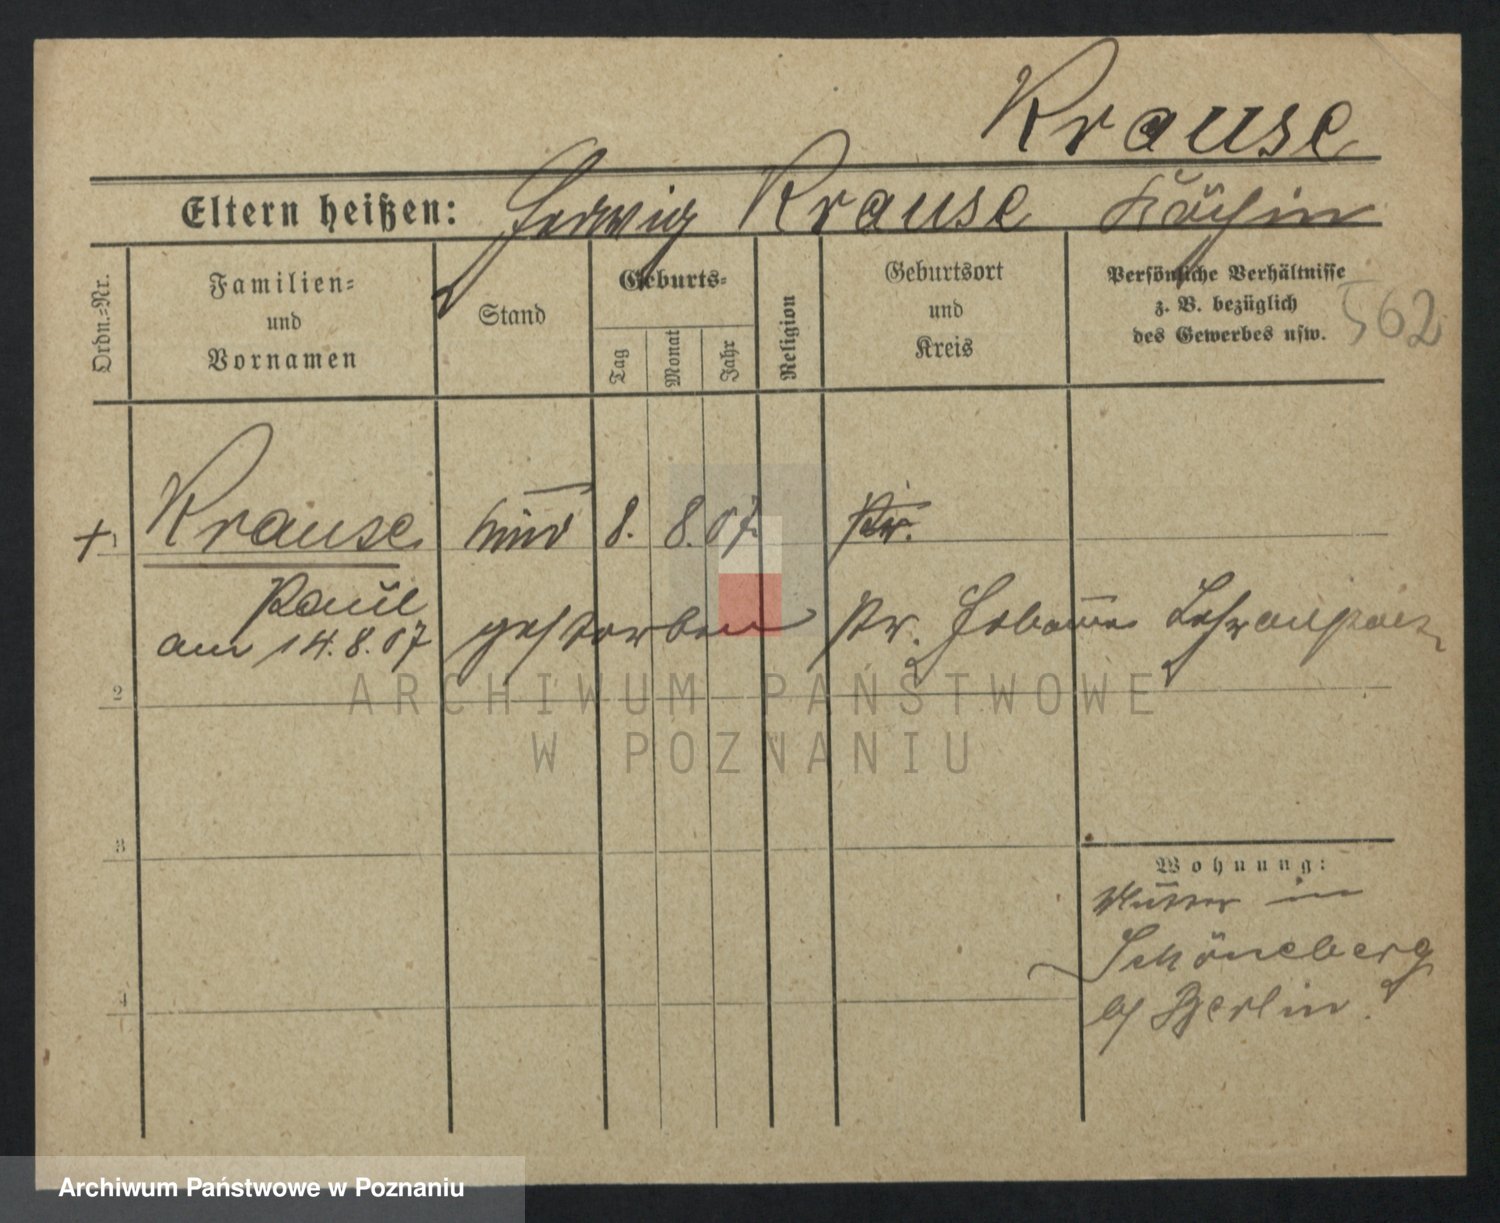 Krause
Eltern heißen: Hedwig Krause Köchin
Ordn.=Nr.
Familien=
und
Vornamen
Stand
Geburts=
Tag
Monat
Jahr
Religion
Geburtsort
und
Kreis
Persönliche Verhältnisse
z. B. bezüglich
des Gewerbes usw.
562
+ 1 Krause Kind 8. 8. 07. Pr.
Paul
am 14.8.07 gestorben Pr.
2
ARCHIWUM PAŃSTWOWE
W POZNANIU
3
Wohnung:
Mutter in
Schöneberg
b/ Berlin.
4
Archiwum Państwowe w Poznaniu